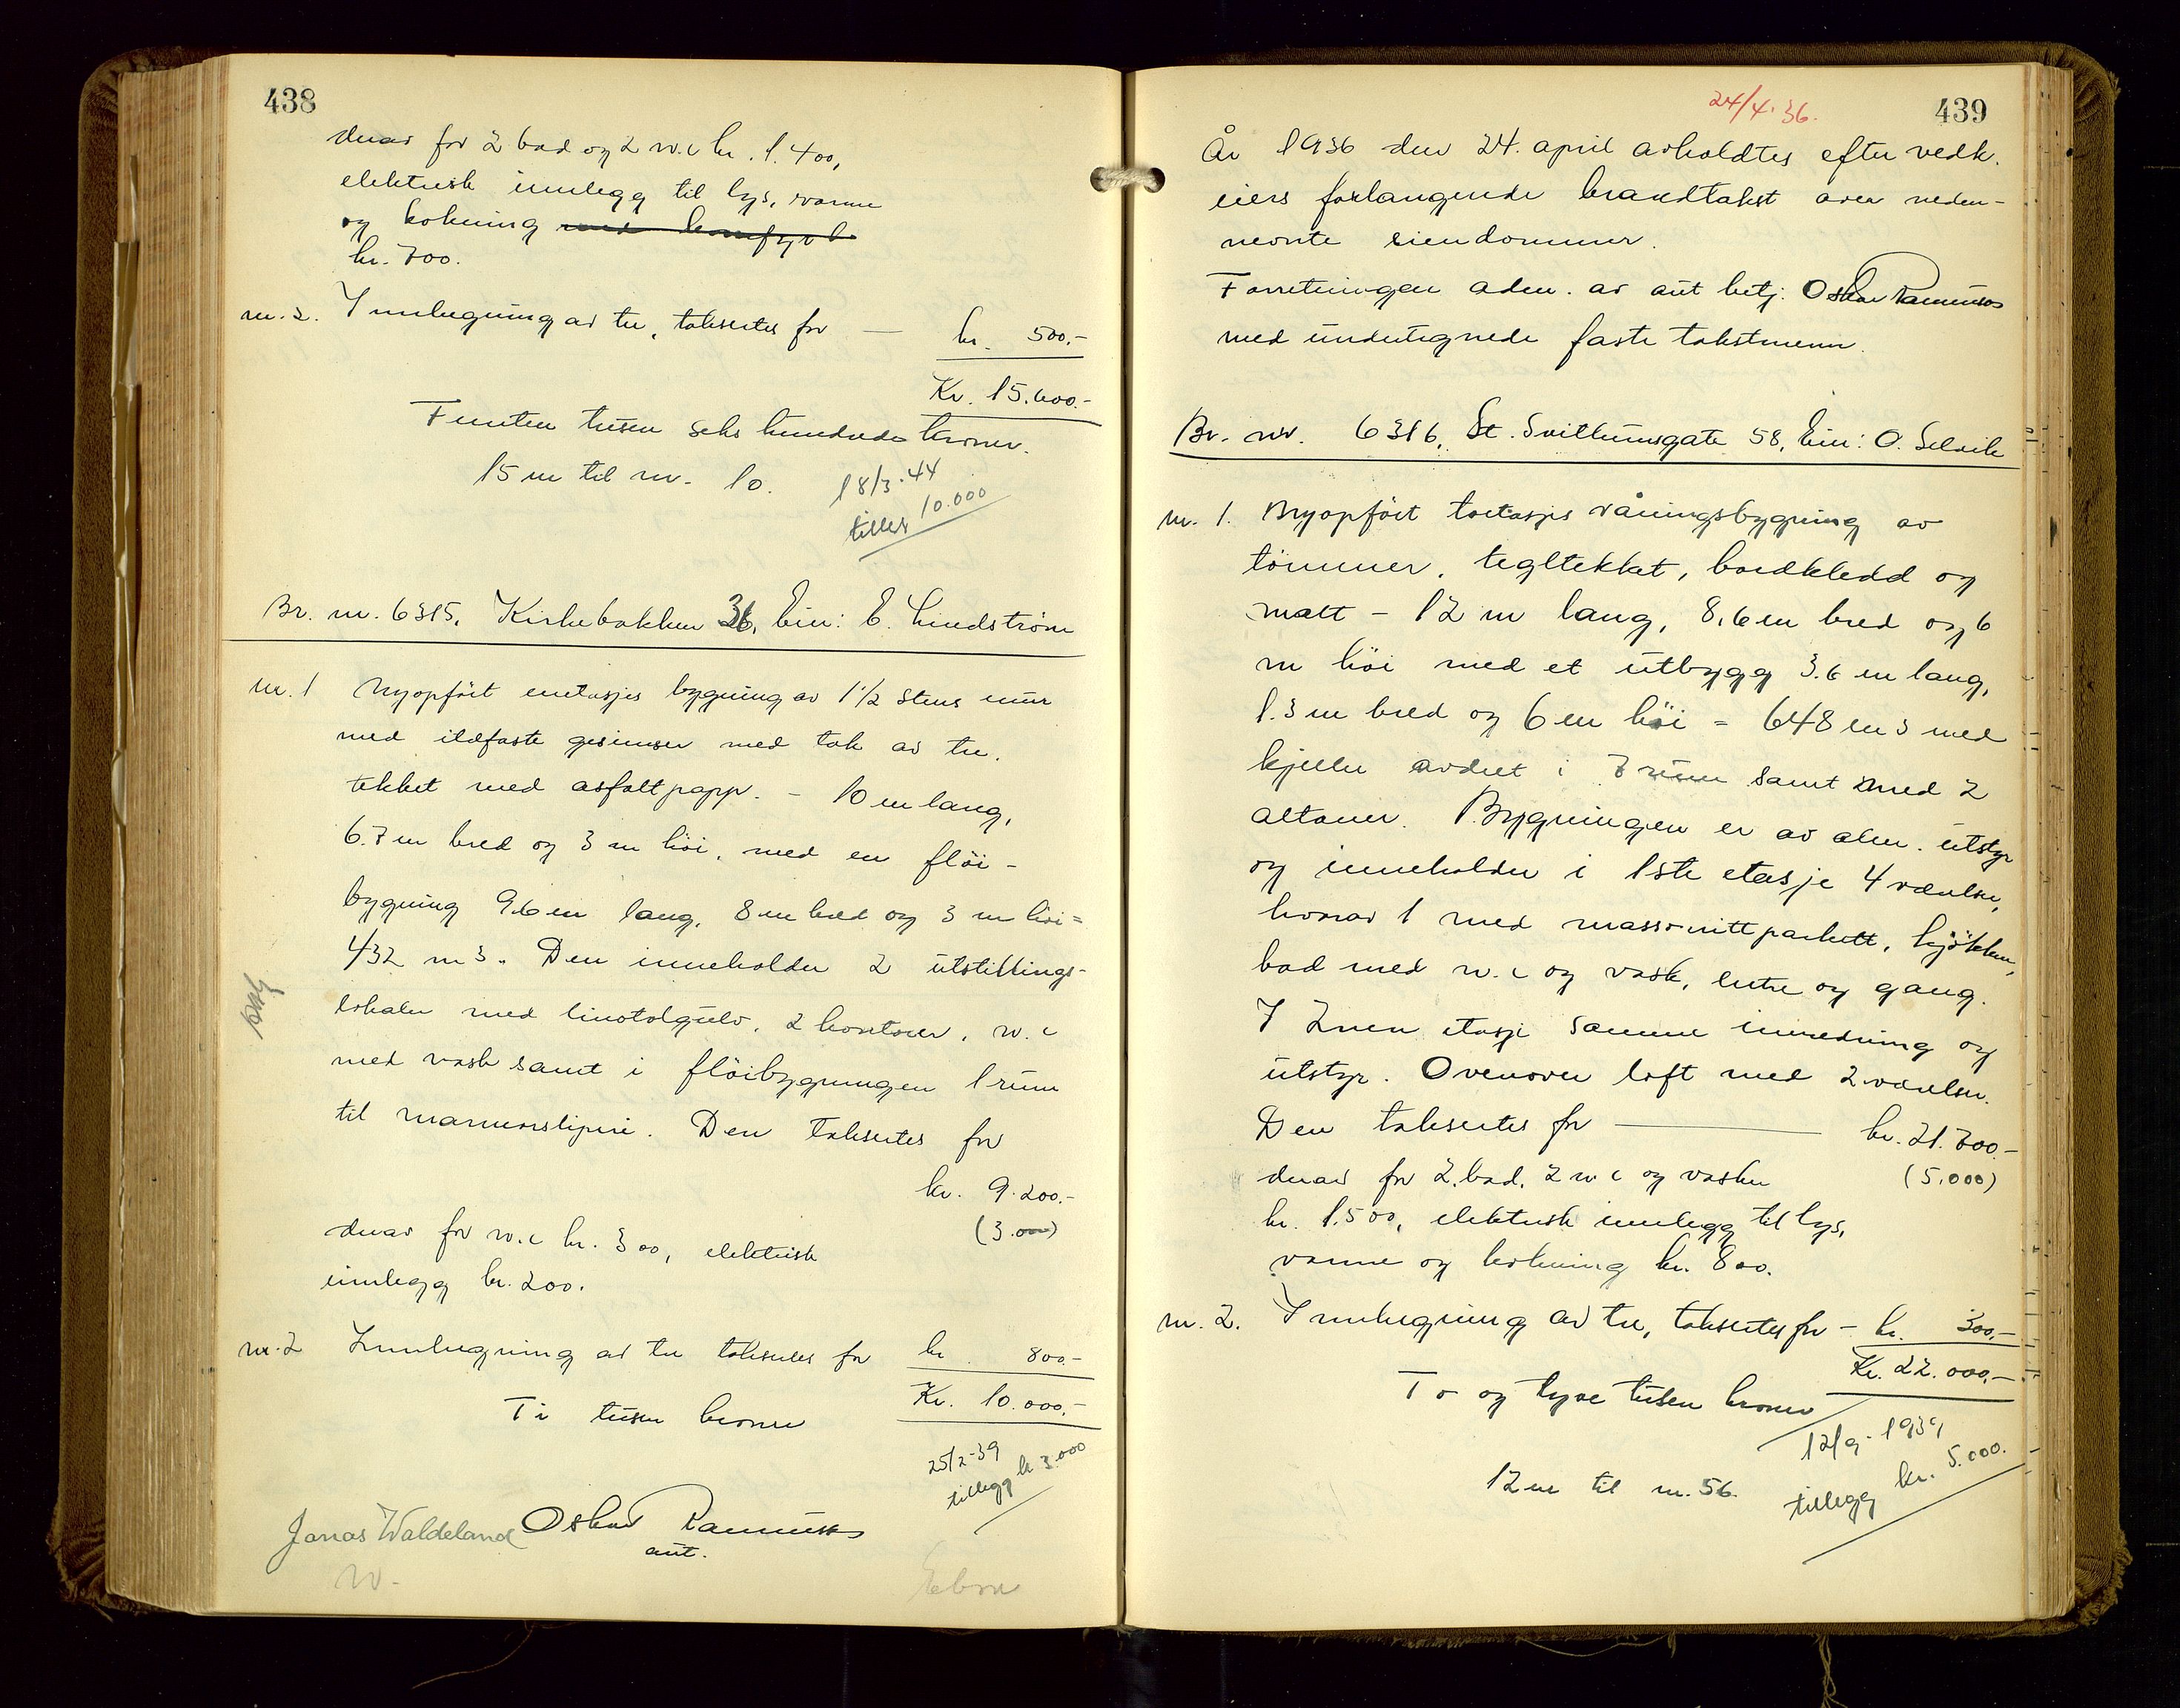 438
derav for 2 bad og 2 w.c kr. 1.400,
elektrisk innlegg til lys, varme
og kokning med komfyrl
kr. 700.
nr. 2. Innhegning av tre, taksertes for — kr. 500.-
Kr. 15.600.-
Femten tusen seks hundrede kroner.
15 m til nr. 10.
18/3.44
tillegg 10.000
Br. nr. 6315. Kirkebakken 36, Eier: E. Lindstrøm
nr. 1 Nyopført enetasjes bygning av 1½ stens mur
med ildfaste gesimser med tak av tre,
tekket med asfaltpapp. - 10 m lang,
6.7 m bred og 3 m høi, med en fløi-
bygning 9.6 m lang, 8 m bred og 3 m høi =
432 m3. Den inneholder 2 utstillings-
lokaler med linotolgulv, 2 kontorer, w.c
med vask samt i fløibygningen 1 rum
til marmorsliperi. Den taksertes for
kr. 9.200.-
(3.000)
derav for w.c kr. 300, elektrisk
innlegg kr. 200.
nr. 2 Innhegning av tre taksertes for kr. 800.-
Kr. 10.000,-
Ti tusen kroner
25/2-39
tillegg kr 3.000
Jonas Waldeland Oskar Rasmussen
aut.
24/4.36.
439
År 1936 den 24. april avholdtes efter vedk.
eiers forlangende brandtakst over neden-
nevnte eiendommer.
Forretningen adm. av aut betj. Oskar Rasmussen
med undertegnede faste takstmenn.
Br. nr. 6316, St. Svithunsgate 58, Eier: O. Selvik
nr. 1. Nyopført toetasjes våningsbygning av
tømmer, tegltekket, bordkledd og
malt - 12 m lang, 8,6 m bred og 6
m høi med et utbygg 3.6 m lang,
1.3 m bred og 6 m høi = 648 m3 med
kjeller avdelt i 7 rum samt med 2
altaner. Bygningen er av alm. utstyr
og inneholder i 1ste etasje 4 værelser,
hvorav 1 med massonittparkett, kjøkken,
bad med w.c og vask, entre og gang.
I 2nen etasje samme innredning og
utstyr. Ovenover loft med 2 værelser.
Den taksertes for — kr. 21.700.-
derav for 2 bad, 2 w.c og vasker (5.000)
kr. 1.500, elektrisk innlegg til lys,
varme og kokning kr. 800.
nr. 2. Innhegning av tre, taksertes for - kr. 300.-
Kr. 22.000,-
To og tyve tusen kroner
12/9-1939
12 m til nr. 56.
tillegg kr. 5.000.